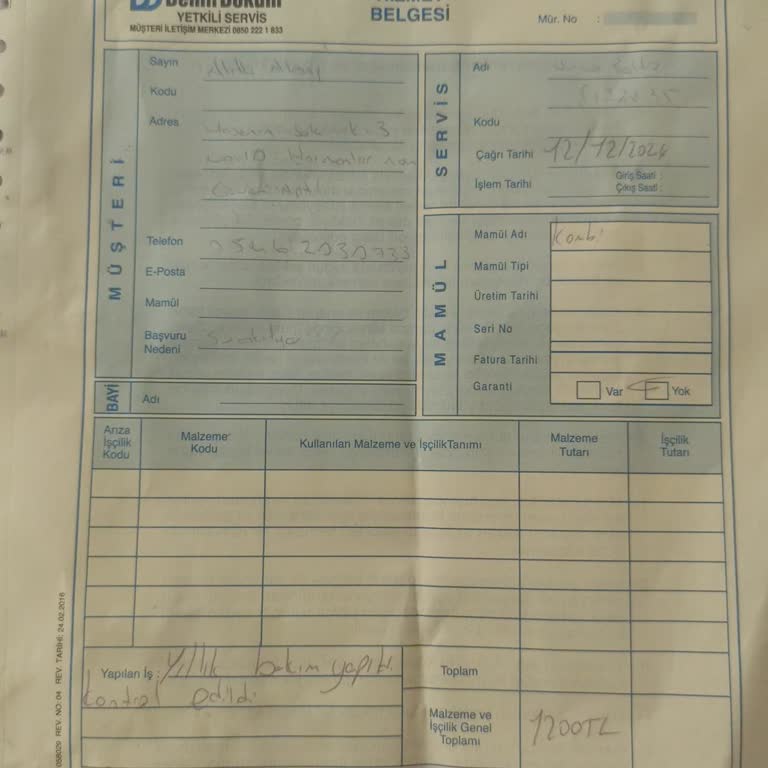 DemirDöküm
YETKİLİ SERVİS
MÜŞTERİ İLETİŞİM MERKEZİ 0850 222 1 833
BELGESİ
Mür. No :
MÜŞTERİ
Sayın
Kodu
Adres
No:10
Telefon
E-Posta
Mamül
Başvuru
Nedeni
BAYİ
Adı
SERVİS
Adı
Kodu
Çağrı Tarihi 12/12/2024
İşlem Tarihi
Giriş Saati :
Çıkış Saati :
MAMÜL
Mamül Adı Kombi
Mamül Tipi
Üretim Tarihi
Seri No
Fatura Tarihi
Garanti Var Yok
Arıza
İşçilik
Kodu
Malzeme
Kodu
Kullanılan Malzeme ve İşçilikTanımı
Malzeme
Tutarı
İşçilik
Tutarı
Yapılan İş : Yıllık bakım yapıldı
kontrol edildi
Toplam
Malzeme ve
İşçilik Genel
Toplamı
1200TL
058029 REV. NO: 04 REV. TARİHİ: 24.02.2016